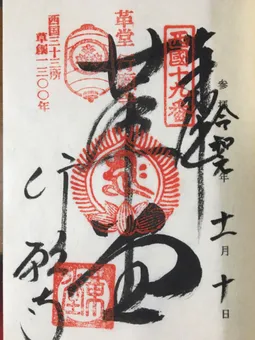 奉拝
西國十九番
十一月十日
革堂
行願寺
西国三十三所
草創一三〇〇年
革堂